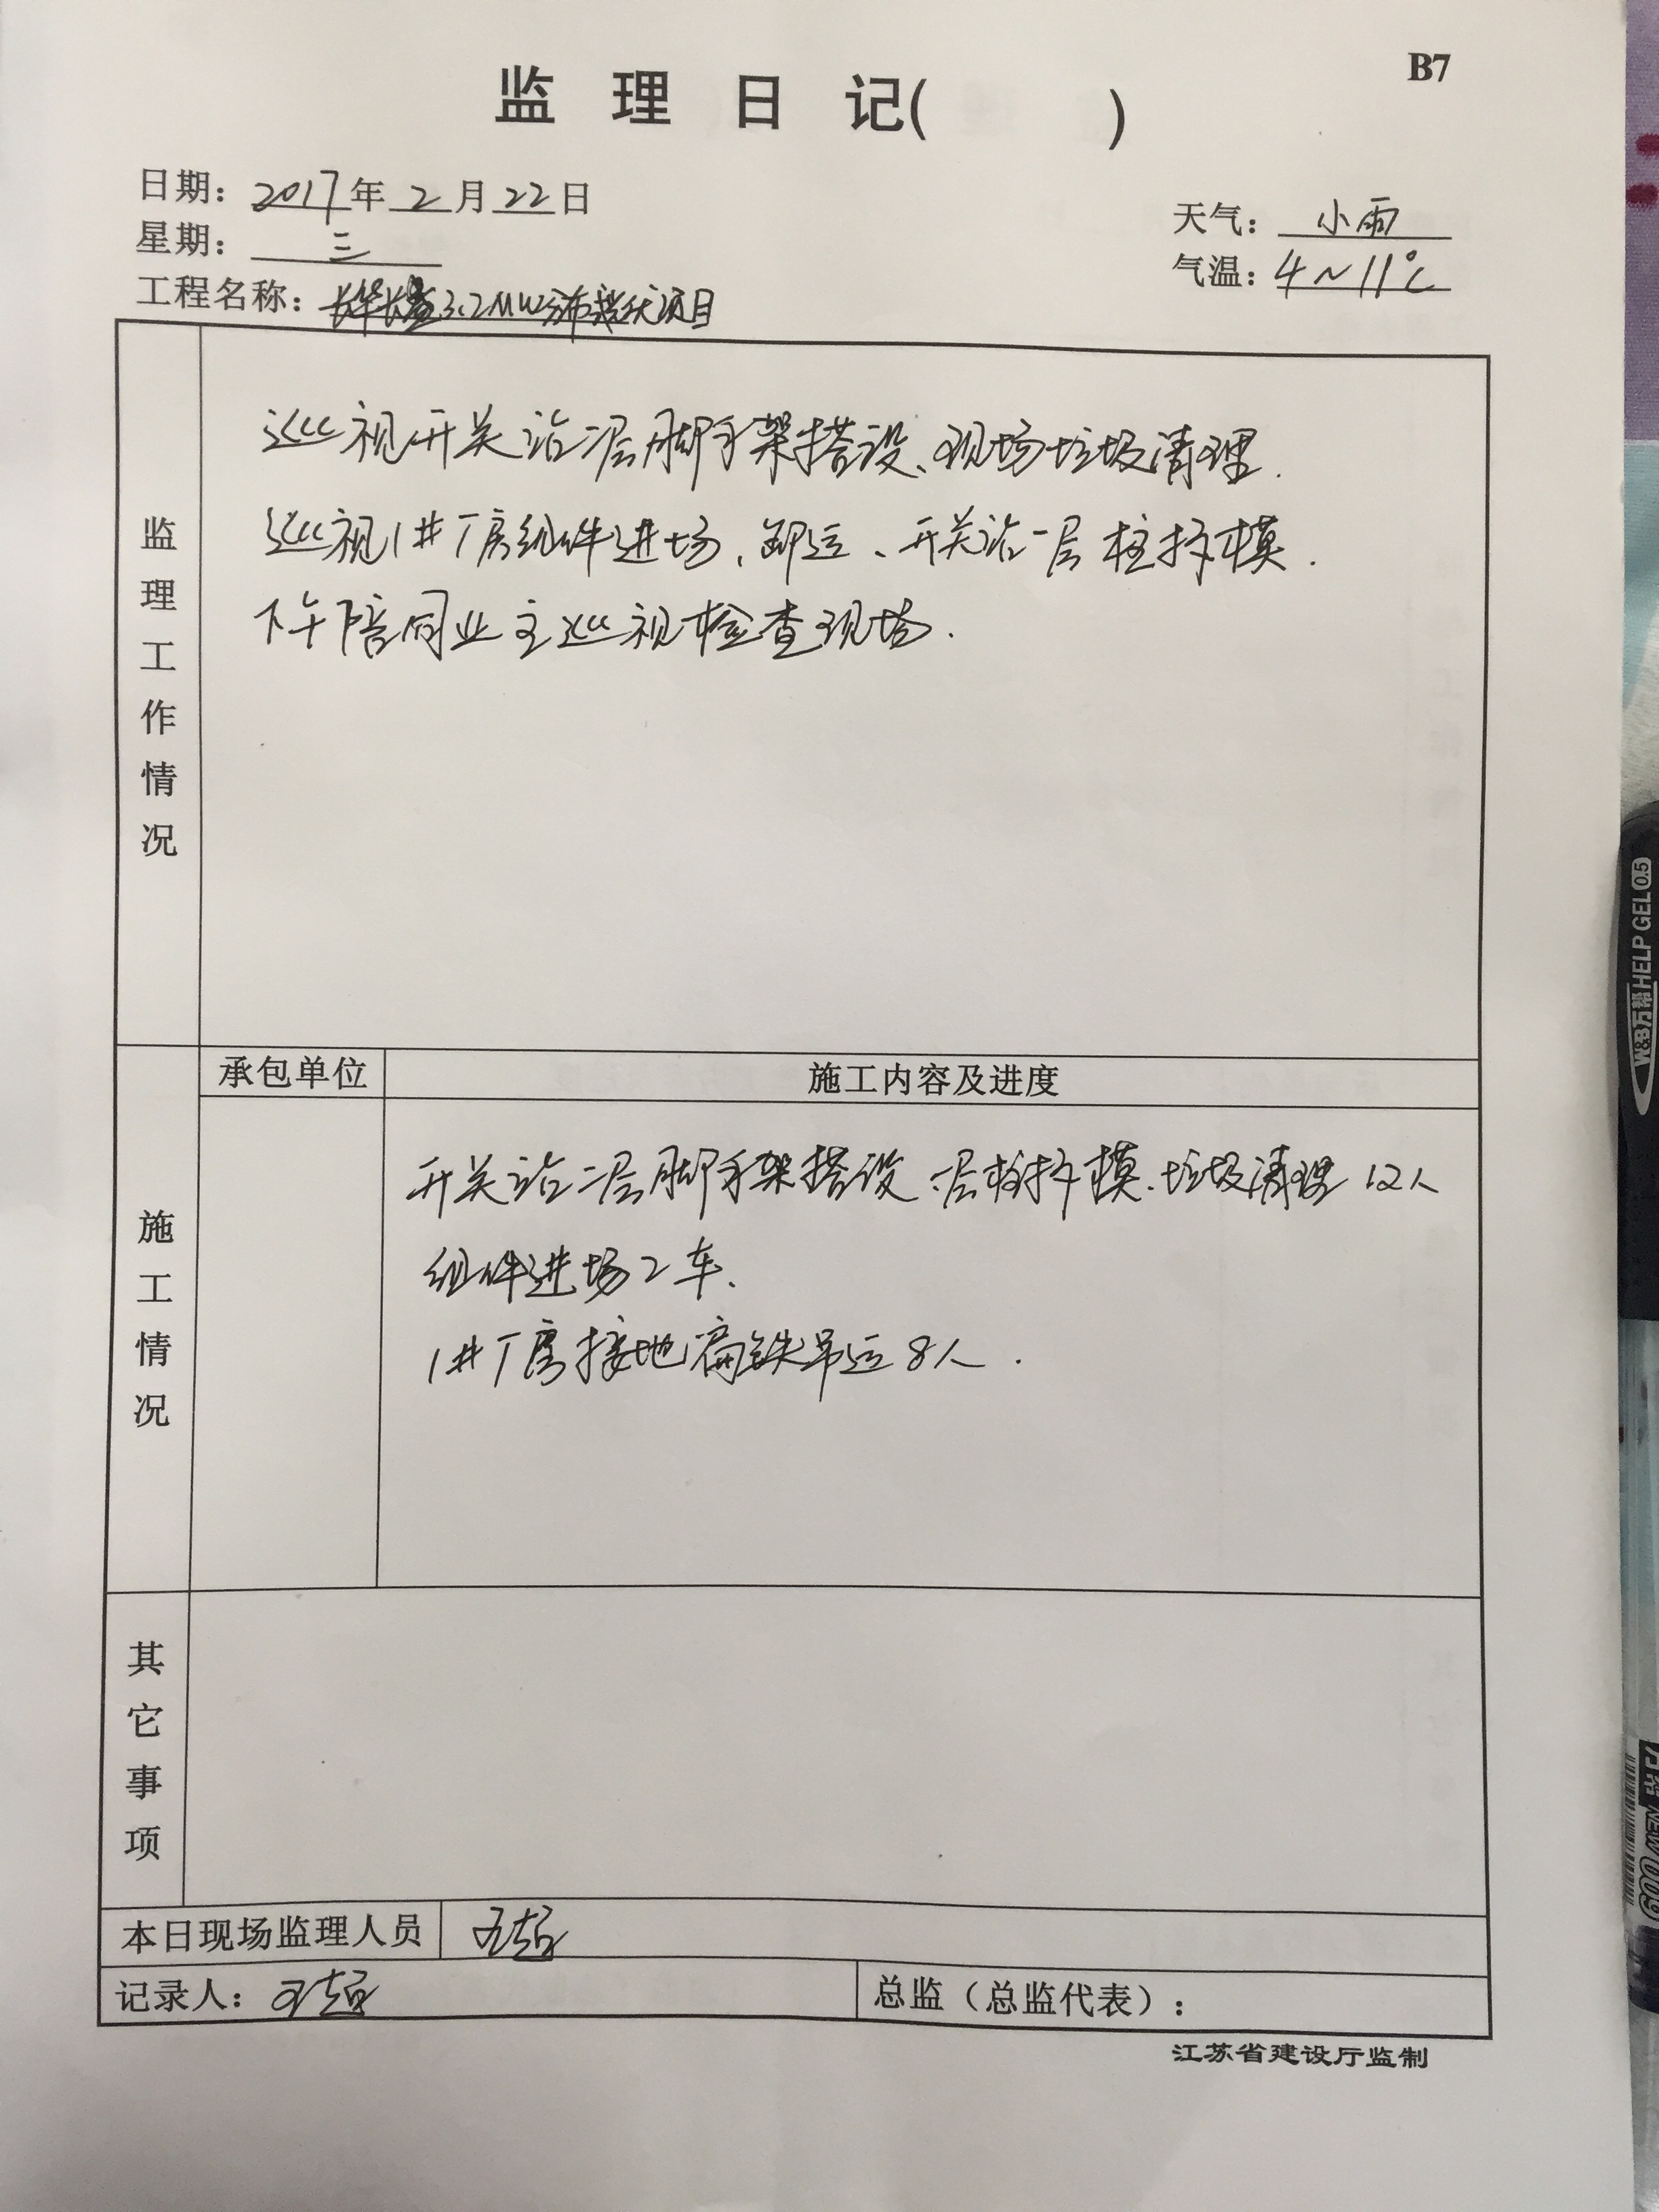 B7
监理日记( )
日期：2017年2月22日
天气：小雨
星期：三
气温：4~11℃
工程名称：3.2MW分布式项目
监理工作情况
巡视开关站二层脚手架搭设、现场垃圾清理.
巡视1#厂房组件进场、卸运、开关站一层柱拆模.
下午陪同业主巡视检查现场.
承包单位
施工内容及进度
施工情况
开关站二层脚手架搭设.一层柱拆模.垃圾清理 12人
组件进场2车.
1#厂房接地扁铁吊运8人.
其它事项
本日现场监理人员 王超
记录人：王超
总监（总监代表）：
江苏省建设厅监制
W&B万邦HELP GEL 0.5
NEW 009